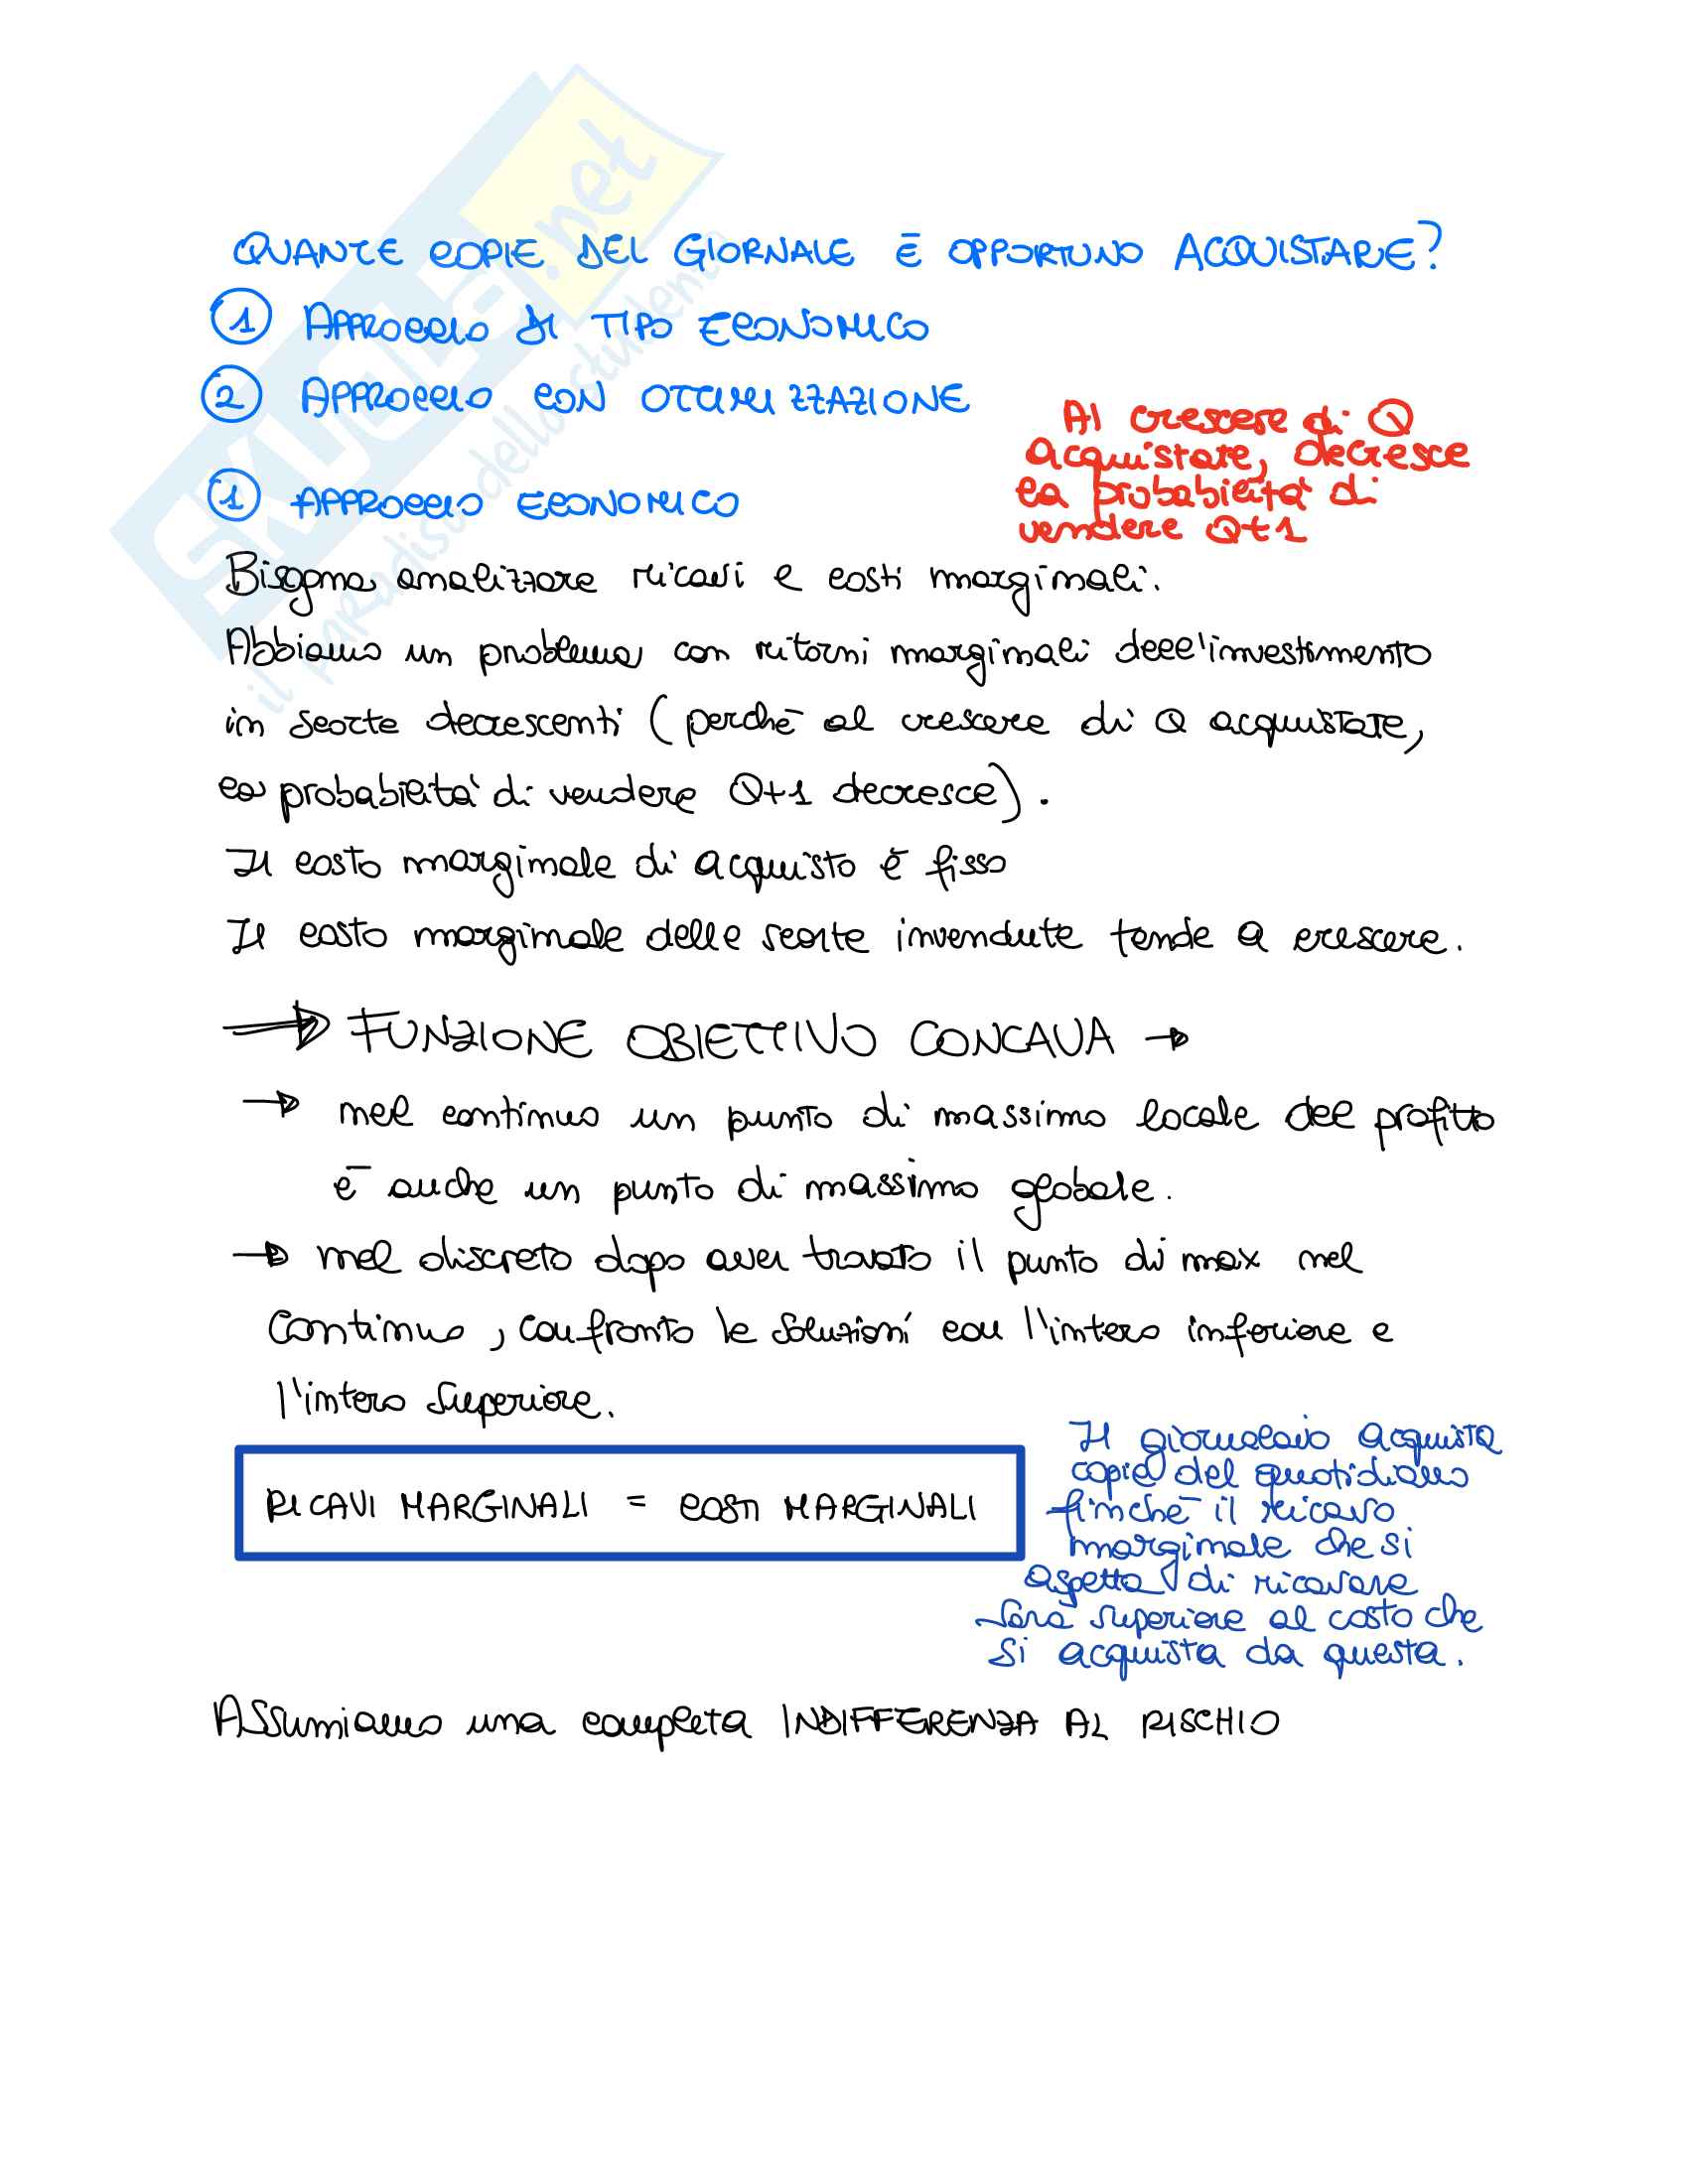 SKUOLA.net
il paradiso dello studente
QUANTE COPIE DEL GIORNALE È OPPORTUNO ACQUISTARE?
1 APPROCCIO DI TIPO ECONOMICO
2 APPROCCIO CON OTTIMIZZAZIONE
Al crescere di Q
acquistate, decresce
la probabilità di
vendere Q+1
1 APPROCCIO ECONOMICO
Bisogna analizzare ricavi e costi marginali.
Abbiamo un problema con ritorni marginali dell'investimento
in scorte decrescenti (perché al crescere di Q acquistate,
la probabilità di vendere Q+1 decresce).
Il costo marginale di acquisto è fisso
Il costo marginale delle scorte invendute tende a crescere.
⇒ FUNZIONE OBIETTIVO CONCAVA →
→ nel continuo un punto di massimo locale del profitto
è anche un punto di massimo globale.
→ nel discreto dopo aver trovato il punto di max nel
continuo, confronto le soluzioni con l'intero inferiore e
l'intero superiore.
RICAVI MARGINALI = COSTI MARGINALI
Il giornalaio acquista
copie del quotidiano
finché il ricavo
marginale che si
aspetta di ricavare
sarà superiore al costo che
si acquista da questa.
Assumiamo una completa INDIFFERENZA AL RISCHIO